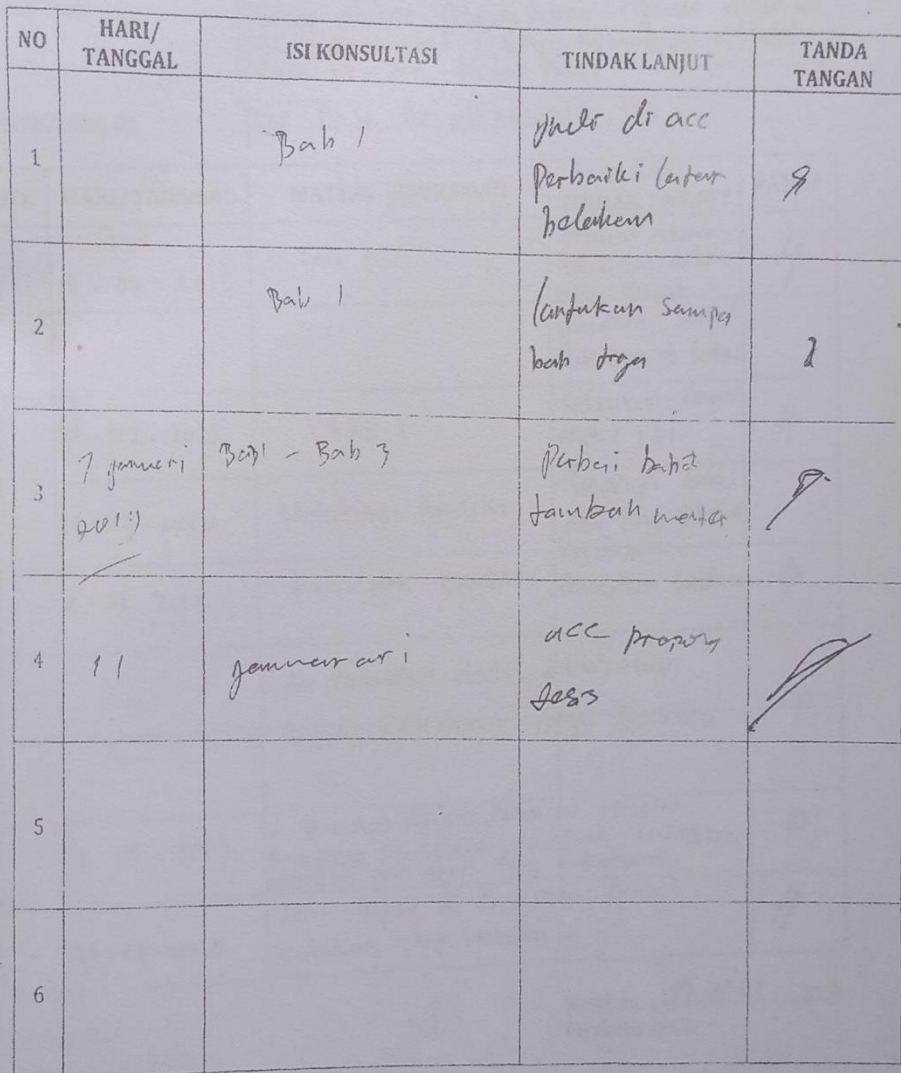 NO HARI/ TANGGAL ISI KONSULTASI TINDAK LANJUT TANDA TANGAN
1 Bab 1 di acc
Perbaiki latar
belakem
2 Bab 1 lanjukan sampa
bab tiga
3 7 januari Bab 1 - Bab 3 Perbai bab 2
tambah
4 11 januarari acc propong
tesis
5
6